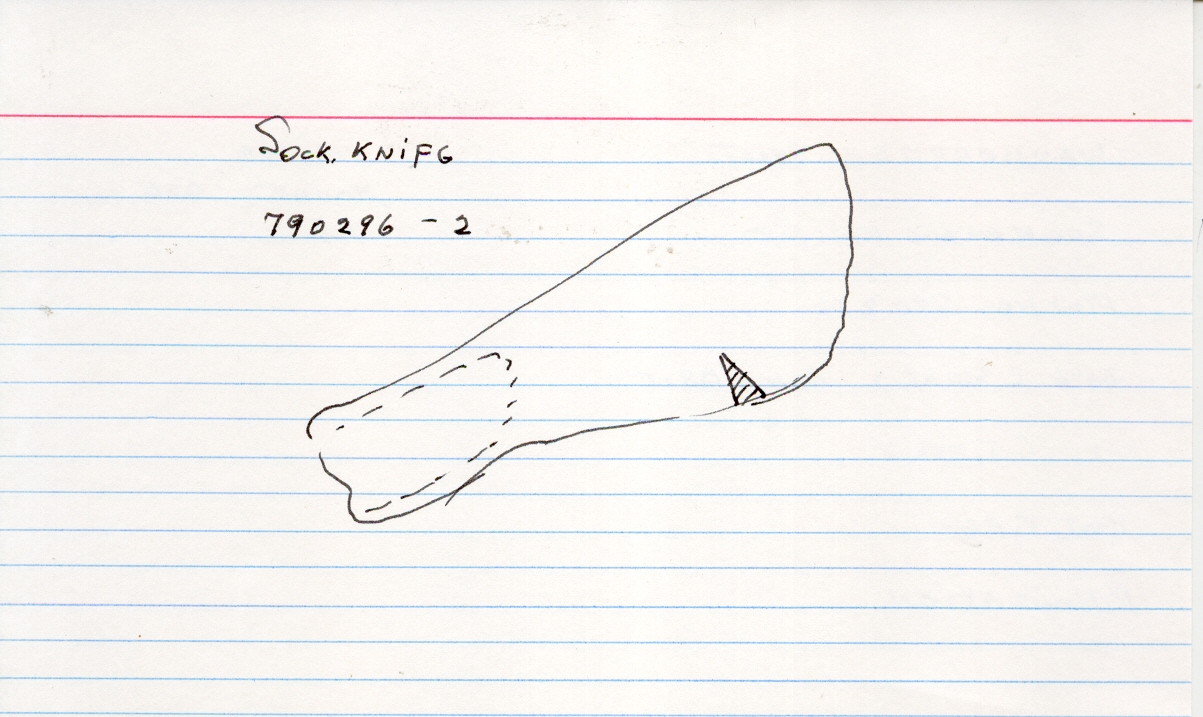 Sock. KNiFE
790296 - 2